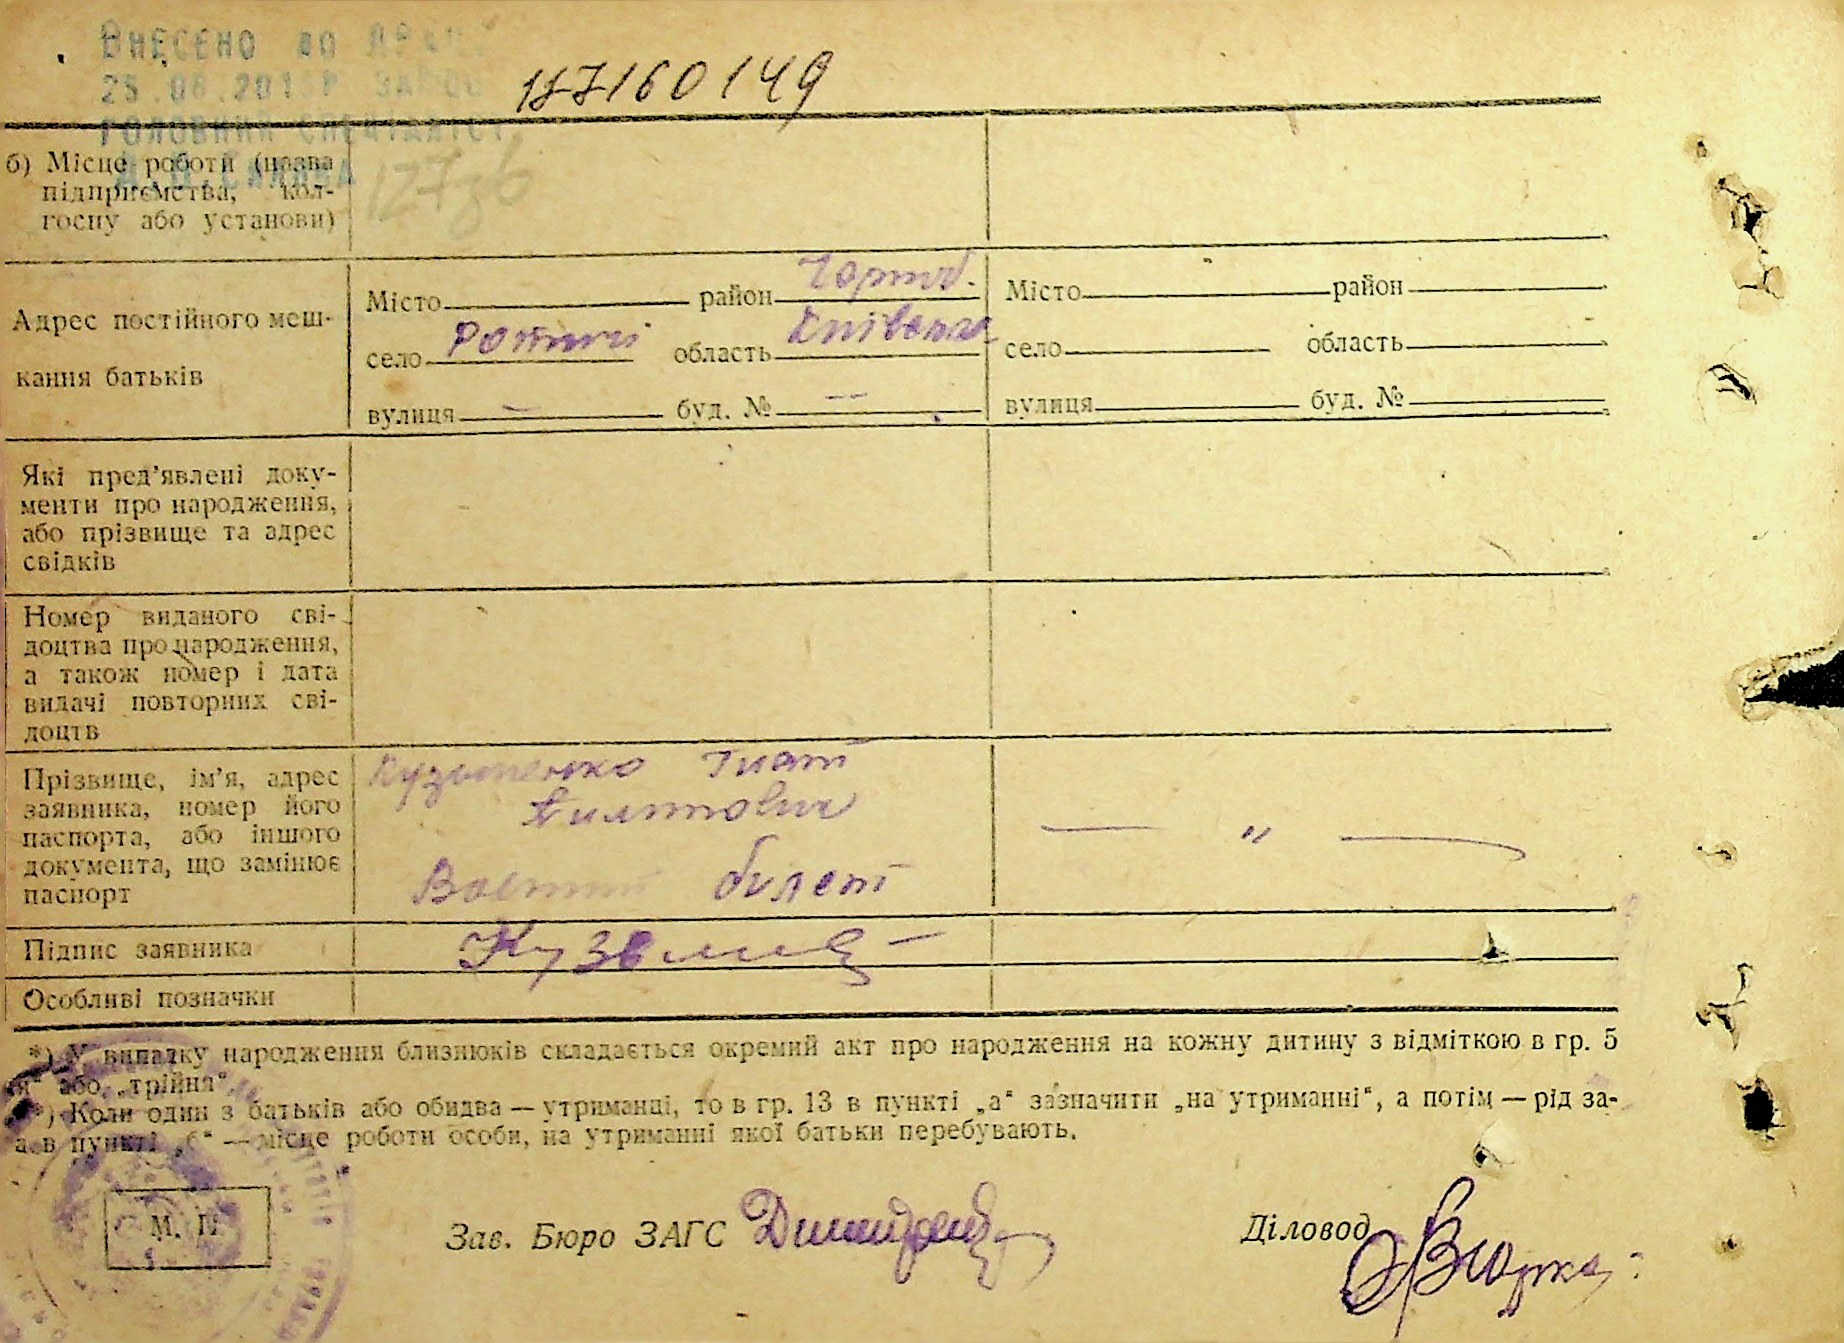 ВНЕСЕНО ДО
25.06.201
ГОЛОВНИЙ СПЕЦІАЛІСТ
177160149
б) Місце роботи (назва
підприємства, кол-
госпу або установи)
Адрес постійного меш-
кання батьків
Місто район Чорноб.
село область Київська
вулиця — буд. № — —
Місто район
село область
вулиця буд. №
Які пред’явлені доку-
менти про народження,
або прізвище та адрес
свідків
Номер виданого сві-
доцтва про народження,
а також номер і дата
видачі повторних сві-
доцтв
Прізвище, ім’я, адрес
заявника, номер його
паспорта, або іншого
документа, що замінює
паспорт
Кузьменко Гнат
Военний билет
— „ —
Підпис заявника
Особливі позначки
*) У випадку народження близнюків складається окремий акт про народження на кожну дитину з відміткою в гр. 5
я“ або „трійня“.
*) Коли один з батьків або обидва — утриманці, то в гр. 13 в пункті „а“ зазначити „на утриманні“, а потім — рід за-
а в пункті „б“ — місце роботи особи, на утриманні якої батьки перебувають.
М. П.
Зав. Бюро ЗАГС
Діловод